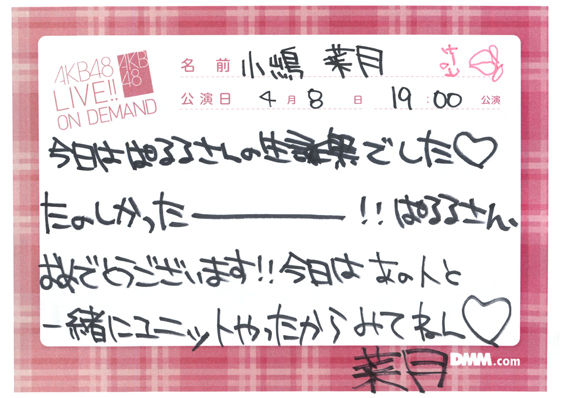 AKB48
LIVE!!
ON DEMAND
AKB
48
名前 小嶋 菜月
公演日 4月8日 19:00 公演
今日はぱるるさんの生誕祭でした♡
たのしかったーーー!!ぱるるさん、
おめでとうございます!!今日はあの人と
一緒にユニットやったからみてねん♡
菜月
DMM.com